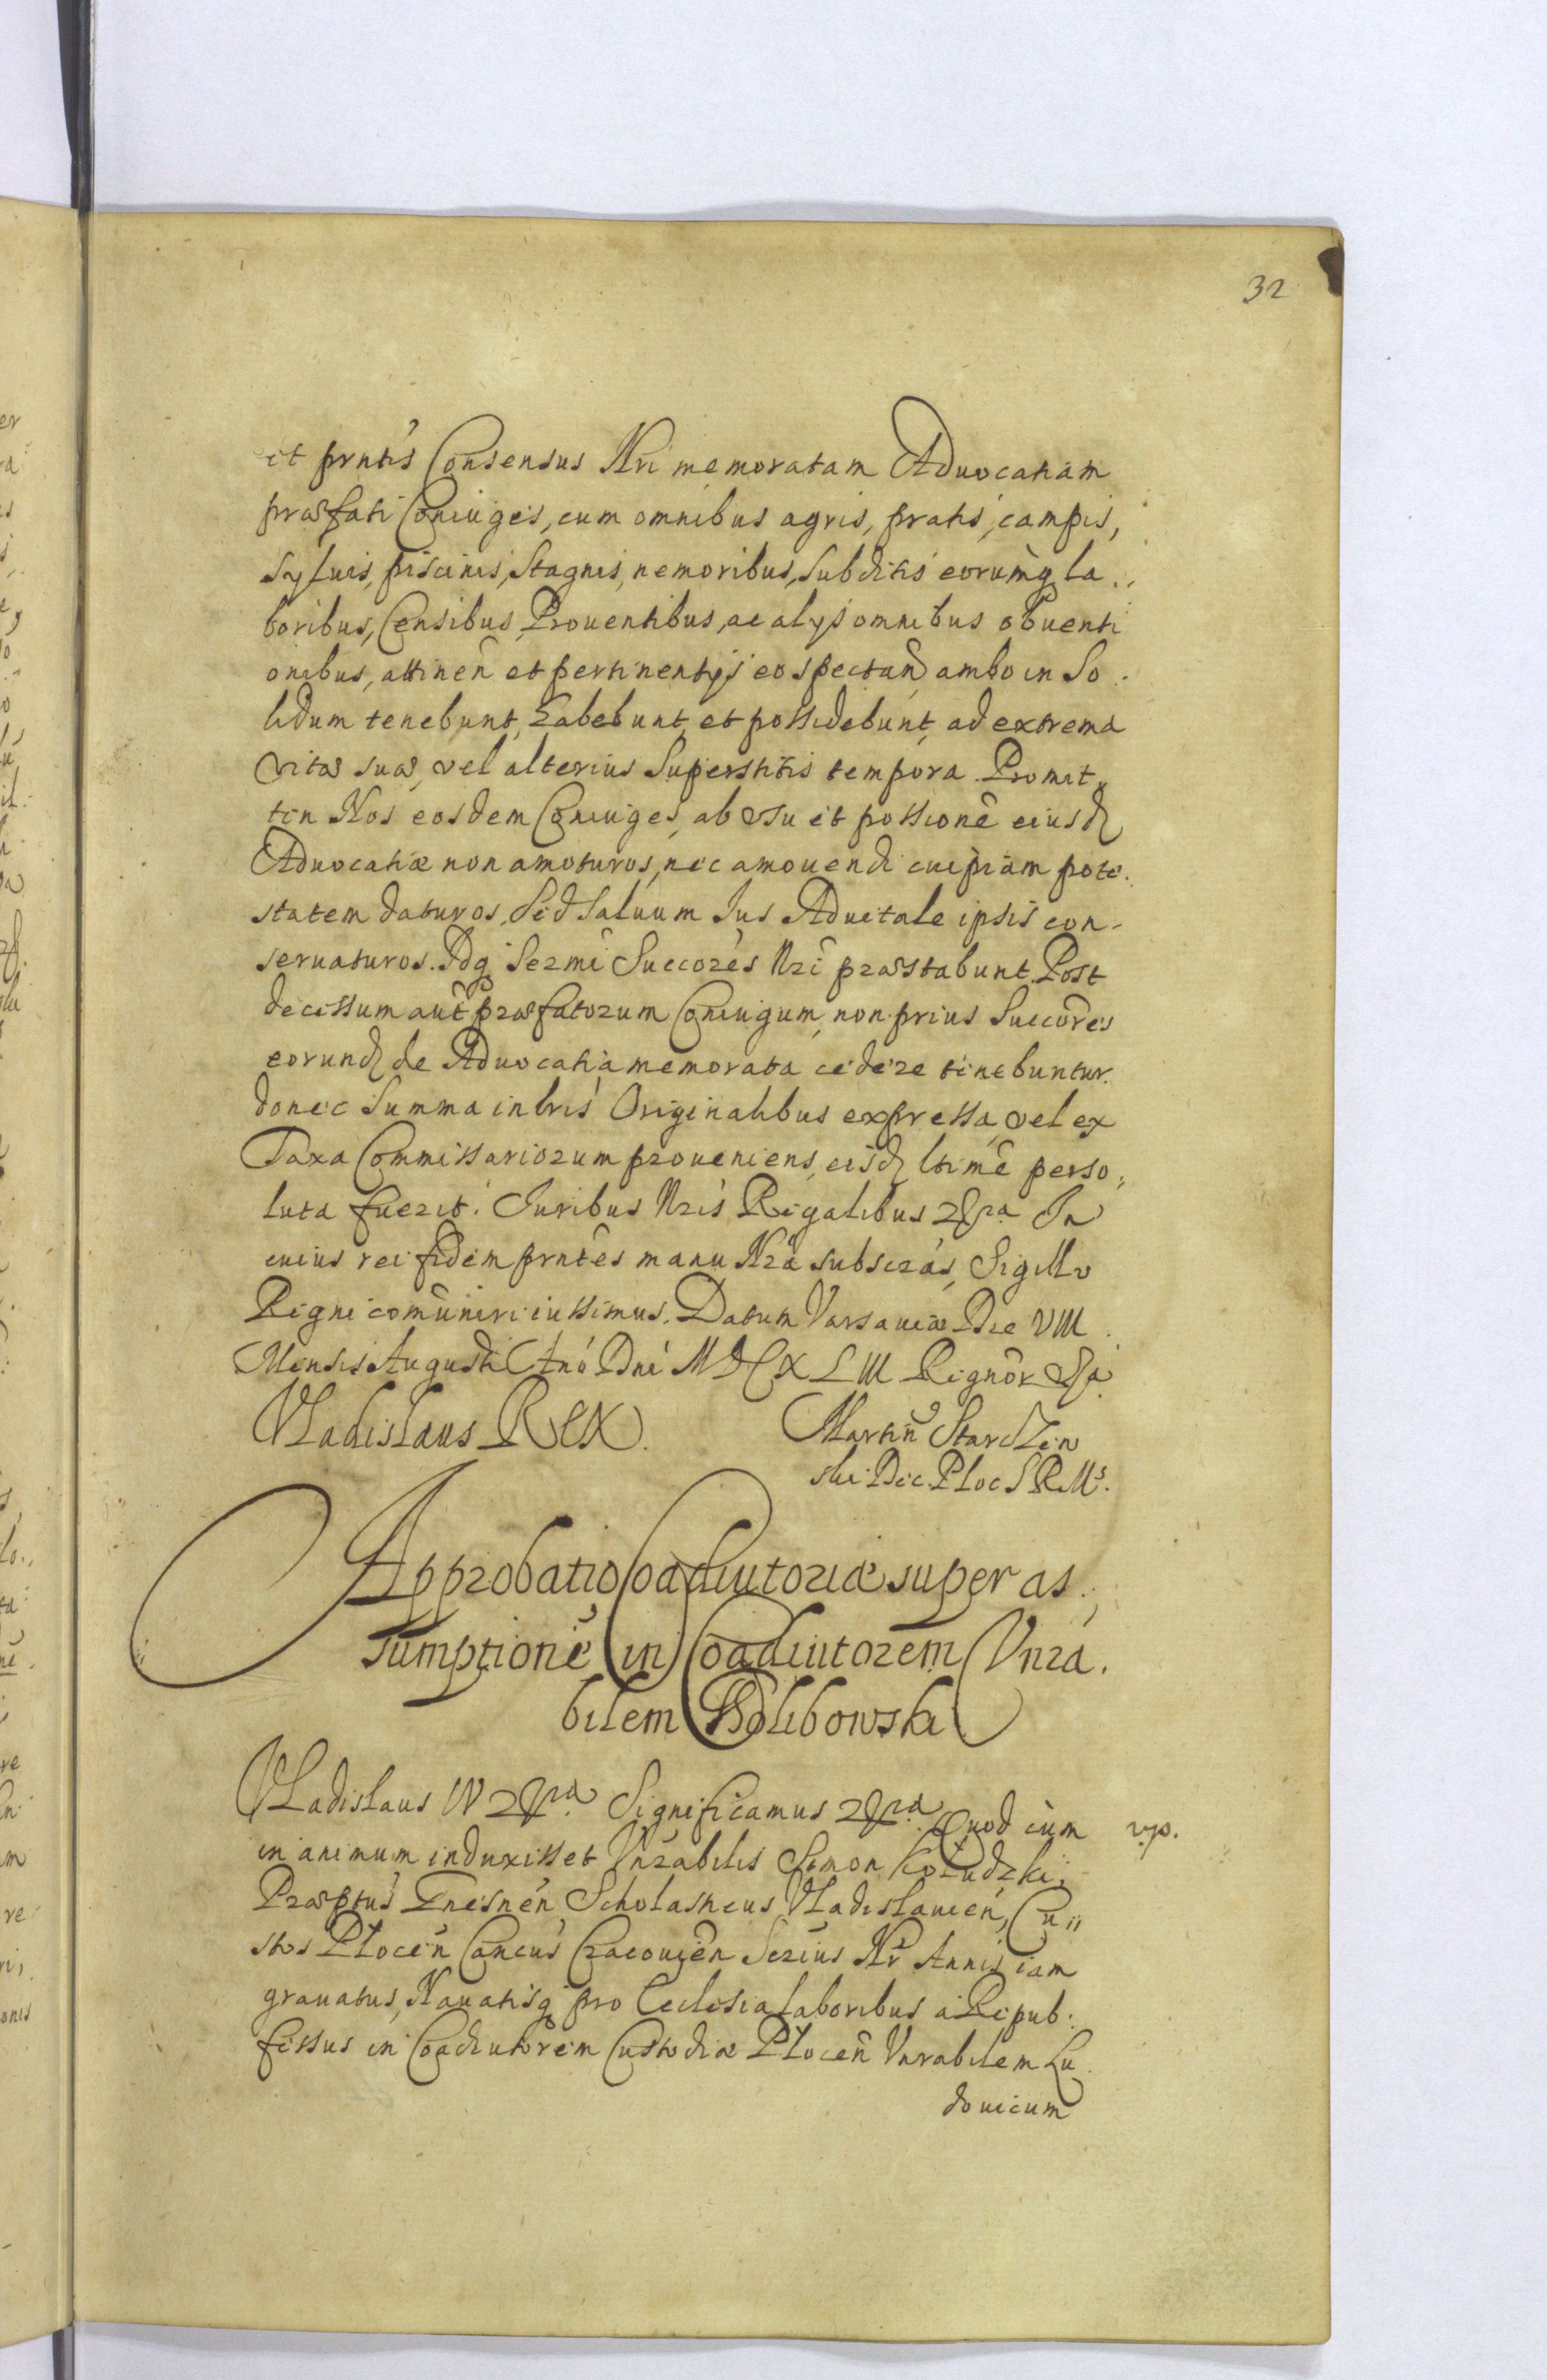 32
et prntis Consensus Nri memoratam Aduocatiam
præfati Coniuges, cum omnibus agris, pratis, campis,
syluis, piscinis, Stagnis, nemoribus, Subditis eorumq la
boribus, Censibus Prouentibus, ac alys omnibus obuenti
onibus, attinen et pertinentys eo spectan ambo in So
lidum tenebunt, habebunt et possidebunt ad extrema
vitæ suæ, vel alterius Superstitis tempora. Promit
tin Nos eosdem Coniuges, ab vsu et possione eiusd
Aduocatiæ non amoturos, nec amouendi cuipiam pote
statem daturos, Sed saluum Jus Aduitale ipsis con-
seruaturos. Idq Sermi Succores Nri præstabunt. Post
decessum aut præfatorum Coniugum, non prius Succores
eorund de Aduocatia memorata cedere tenebuntur.
donec Summa in lris Originalibus expressa, vel ex
Taxa Commissariorum proueniens, eisd ltime perso,
luta fuerit. Juribus Nris Regalibus &ra In
cuius rei fidem prntes manu Nra subscras, Sigillo
Regni comuniri iussimus. Datum Varsauiæ Die VIII
Mensis Augusti Ano Dni MDCXLIII Regnor &a
Vladislaus REX.
Martin Starczew
ski Dec. Ploc S R Ms.
Approbatio Coadiutoriæ super as,
sumptione in Coadiutorem Vnra.
bilem Wolibowski
Vladislaus IV &ra. Significamus &ra. Quod cum
vp.
in animum induxisset Vnrabilis Simon Kołudzki,
Præptus Gnesnen, Scholasticus Vladislauien, Cu
stos Plocen Cancus Cracouien Serius Nr Annis iam
grauatus, Nauatisq pro Ecclesia laboribus a Repub.
fessus in Coadiutorem Custodiæ Plocen Vnrabilem Lu
douicum